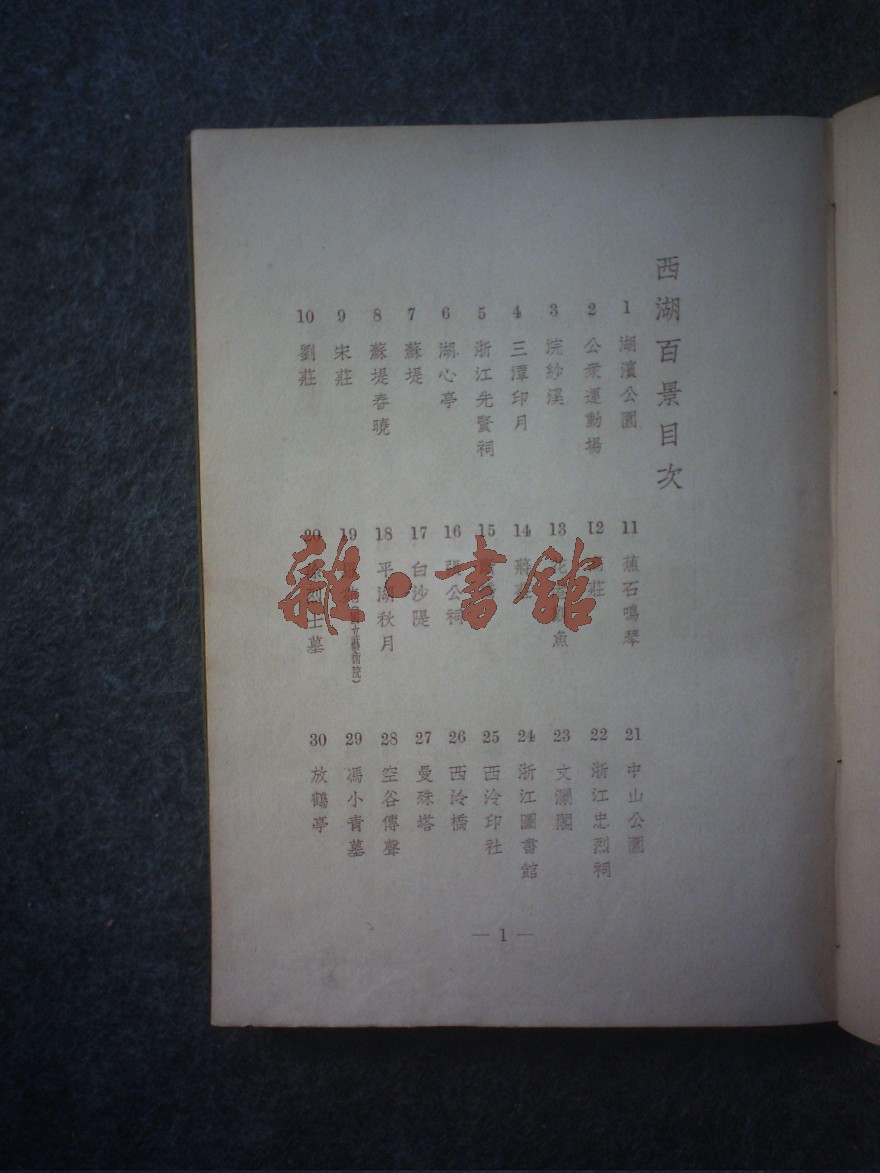 西湖百景目次
1 湖濱公園
2 公衆運動場
3 浣紗溪
4 三潭印月
5 浙江先賢祠
6 湖心亭
7 蘇堤
8 蘇堤春曉
9 宋莊
10 劉莊
11 蕉石鳴琴
12 莊
13 魚
14 蔣莊
15
16 張公祠
17 白沙隄
18 平湖秋月
19 (國立藝術院)
20 烈士墓
21 中山公園
22 浙江忠烈祠
23 文瀾閣
24 浙江圖書館
25 西泠印社
26 西泠橋
27 曼殊塔
28 空谷傳聲
29 馮小青墓
30 放鶴亭
— 1 —
雜·書館